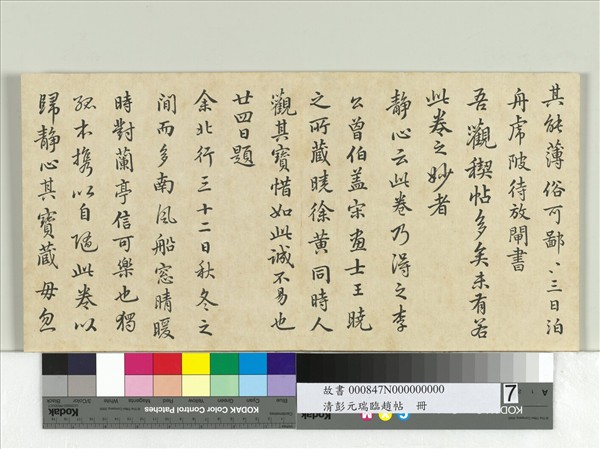 其能薄俗可鄙〻三日泊
舟虎陂待放閘書
吾觀稧帖多矣未有若
此卷之妙者
靜心云此卷乃得之李
公曾伯蓋宋畫士王曉
之所藏曉徐黃同時人
觀其寶惜如此誠不易也
廿四日題
余北行三十二日秋冬之
間而多南風船窓晴暖
時對蘭亭信可樂也獨
孤本攜以自隨此卷以
歸靜心其寶藏毋忽
故書 000847N000000000
清彭元瑞臨趙帖 冊
7
Kodak Color Control Patches
Blue
Cyan
Green
Yellow
Red
Magenta
White
3/Color
Black
Kodak